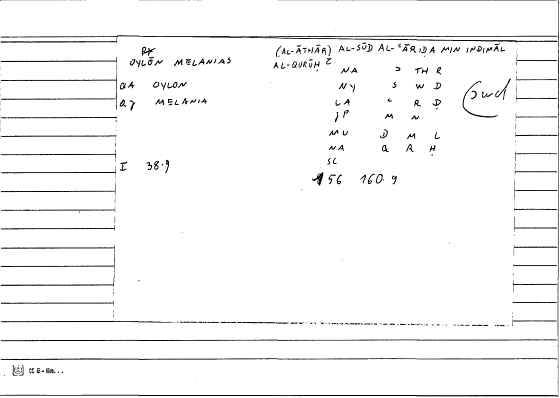 OYLŌN MELANIAS
QA OYLON
Qγ MELANIA
I 38.9
(AL-ĀTHĀR) AL-SŪD AL-ʿĀRIḌA MIN INDIMĀL
AL-QURŪḤ
NA ʾ TH R
NY S W D
LA ʿ R Ḍ
JP M N
MU D M L
NA Q R Ḥ
SC
156 160.9
swd